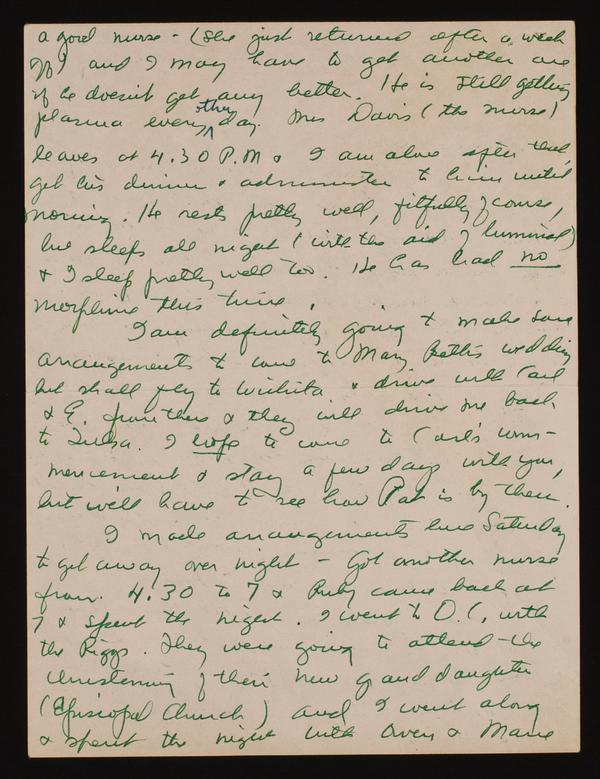 a good nurse - (she just returned after a week
off) and I may have to get another one
if he doesn't get any better. He is still getting
plasma every other day. Mrs Davis (the nurse)
leaves at 4.30 P.M & I am alone after that,
get his dinner & administer to him until
morning. He rests pretty well, fitfully of course,
but sleeps all night (with the aid of luminal)
& I sleep pretty well too. He has had no
morphine this time.
I am definitely going to make some
arrangements to come to Mary Beth's wedding
but shall fly to Wichita & drive with Carl
& E. from there & they will drive me back
to Tulsa. I hope to come to Carl's com-
mencement & stay a few days with you,
but we'll have to see how Pat is by then.
I made arrangements here Saturday
to get away over night - Got another nurse
from 4.30 to 7 & Ruby came back at
7 & spent the night. I went to O.C. with
the Riggs. They were going to attend the
christening of their new granddaughter
(Episcopal Church) and I went along
& spent the night with Owen & Marie